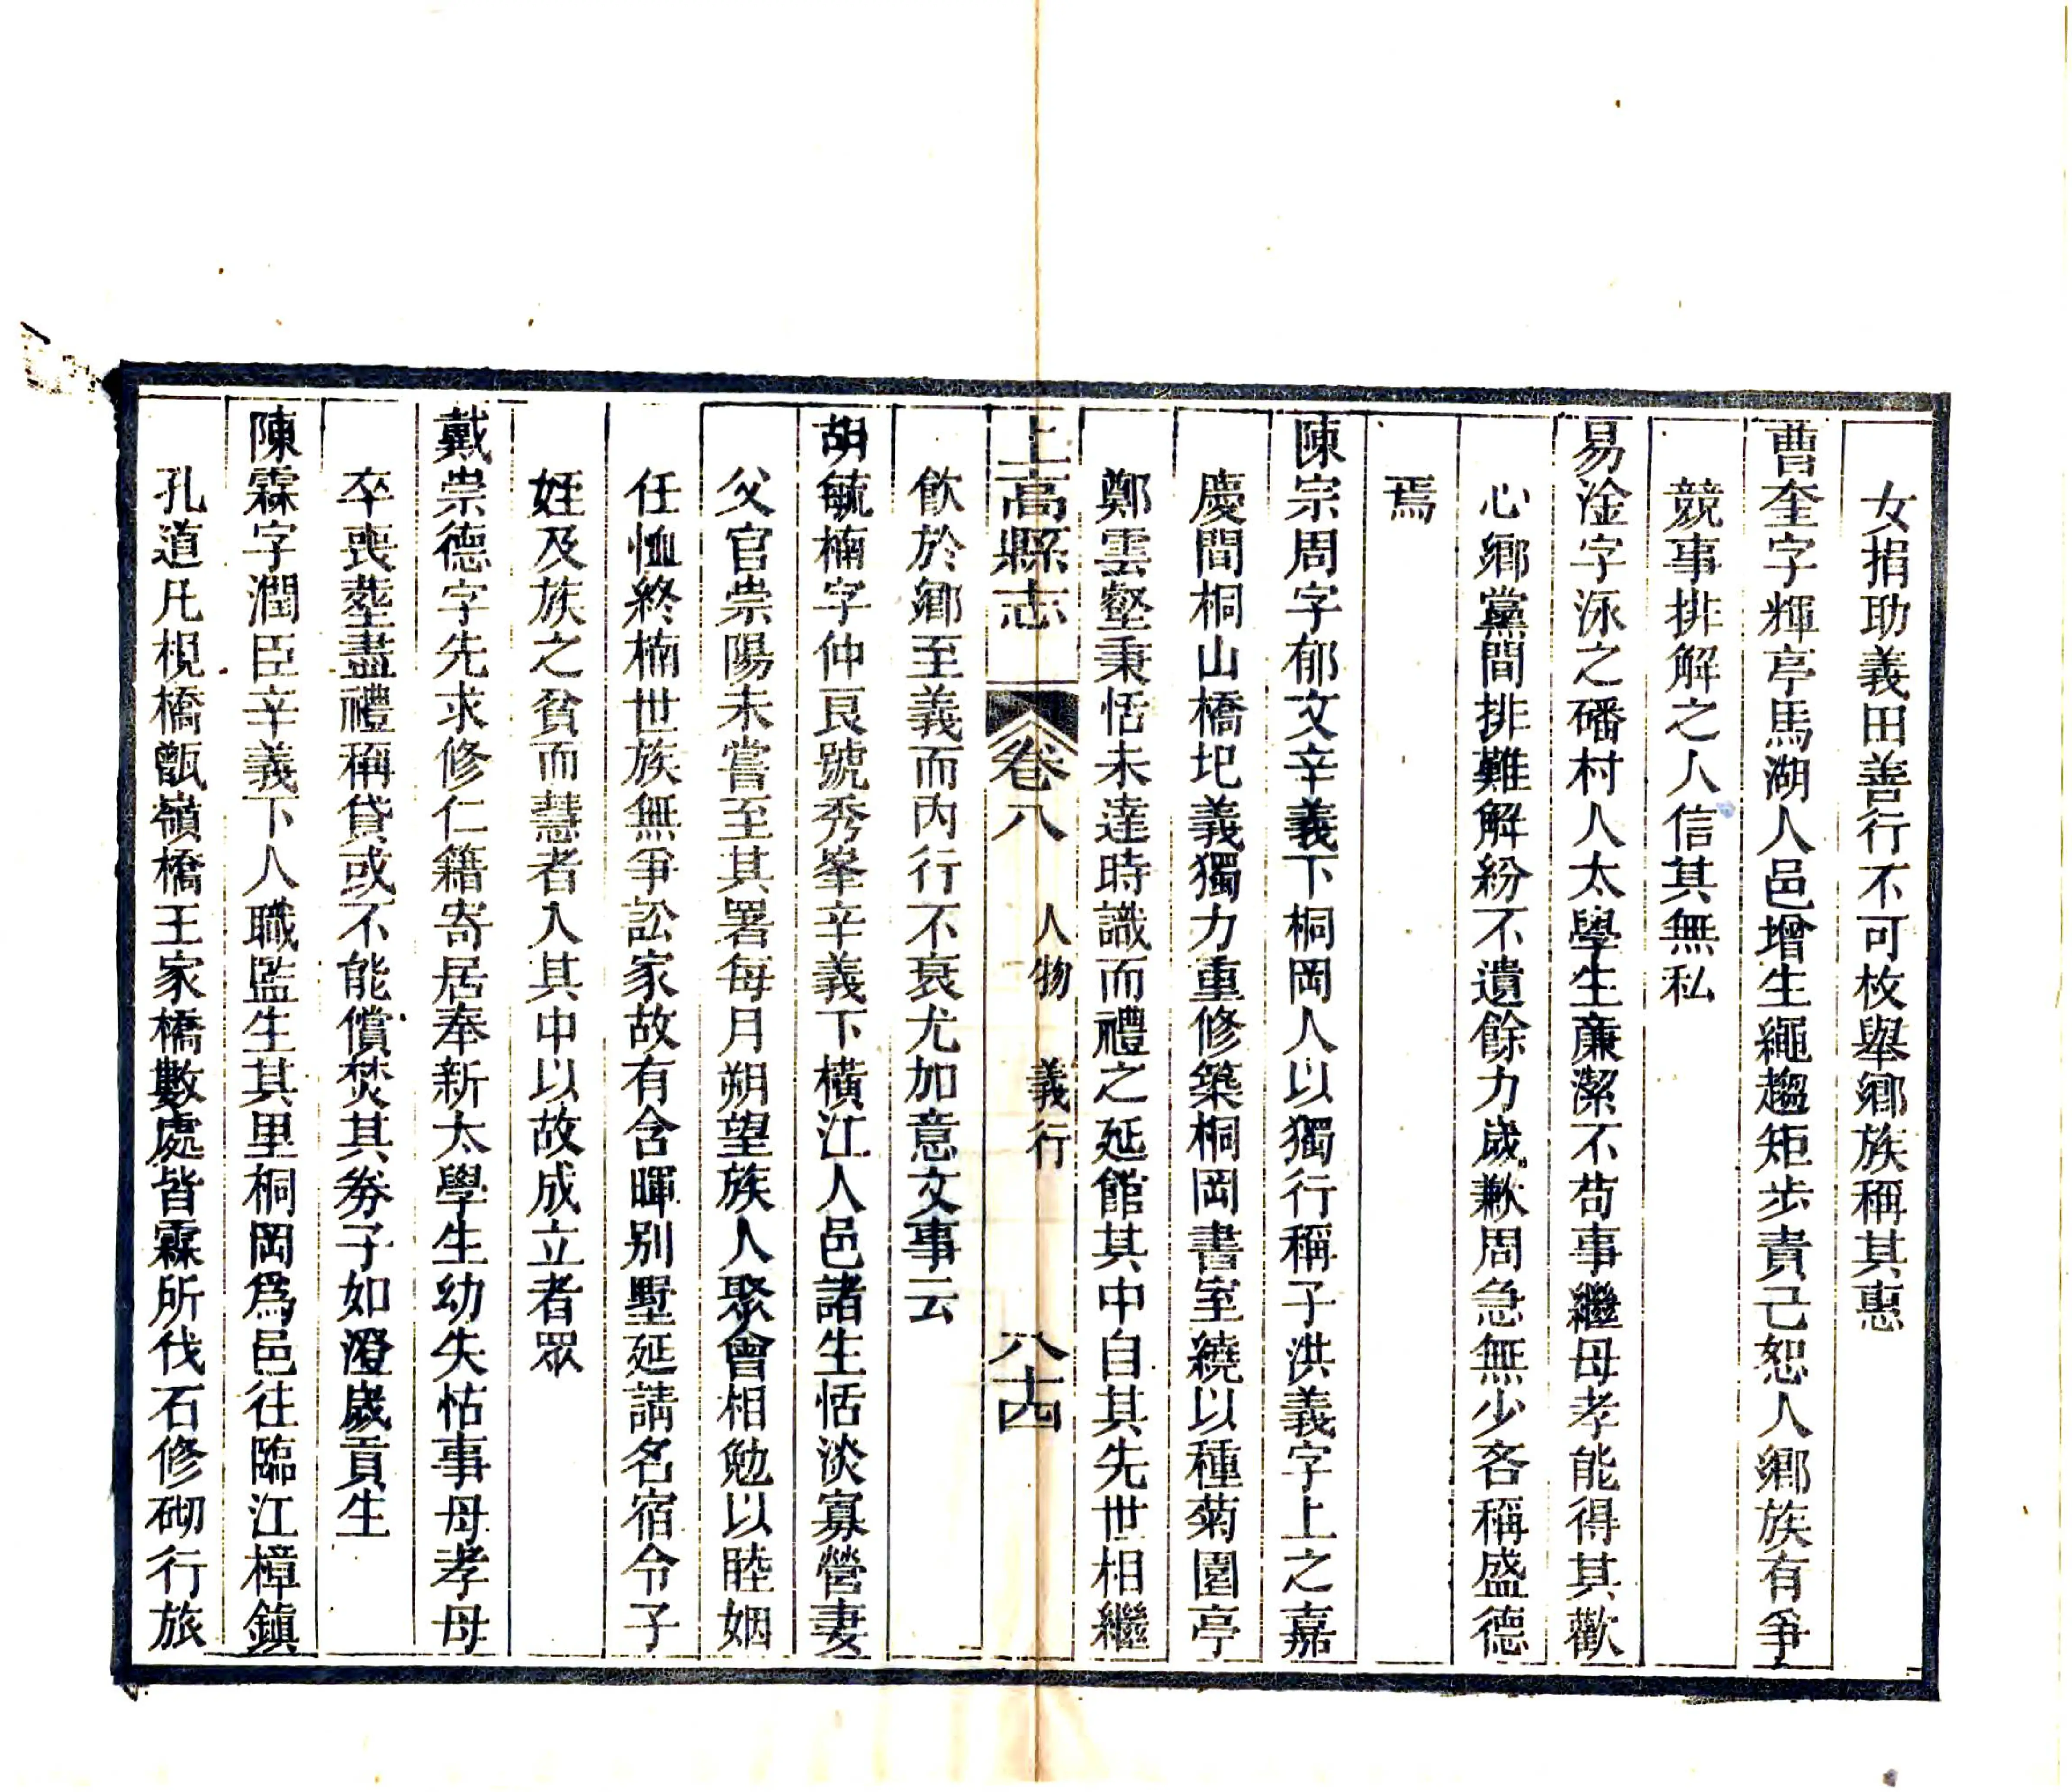 女捐助義田善行不可枚舉鄉族稱其惠
曹奎字輝亭馬湖人邑增生繩趨矩步責己恕人鄉族有爭
競事排解之人信其無私
易淦字泳之磻村人太學生廉潔不苟事繼母孝能得其歡
心鄉黨間排難解紛不遺餘力歲歉周急無少吝稱盛德
焉
陳宗周字郁文辛義下桐岡人以獨行稱子洪義字上之嘉
慶間桐山橋圯義獨力重修築桐岡書室繞以種菊園亭
鄭雲壑秉恬未達時識而禮之延館其中自其先世相繼
上高縣志 卷八 人物 義行 八十四
飲於鄉至義而內行不衰尤加意文事云
胡毓楠字仲艮號秀峯辛義下橫江人邑諸生恬淡寡營妻
父官崇陽未嘗至其署每月朔望族人聚會相勉以睦姻
任恤終楠世族無爭訟家故有含暉別墅延請名宿令子
姪及族之貧而慧者入其中以故成立者眾
戴崇德字先求修仁籍寄居奉新太學生幼失怙事母孝母
卒喪塟盡禮稱貸或不能償焚其券子如澄歲貢生
陳霖字潤臣辛義下人職監生其里桐岡爲邑往臨江樟鎮
孔道凡梘橋甑嶺橋王家橋數處皆霖所伐石修砌行旅